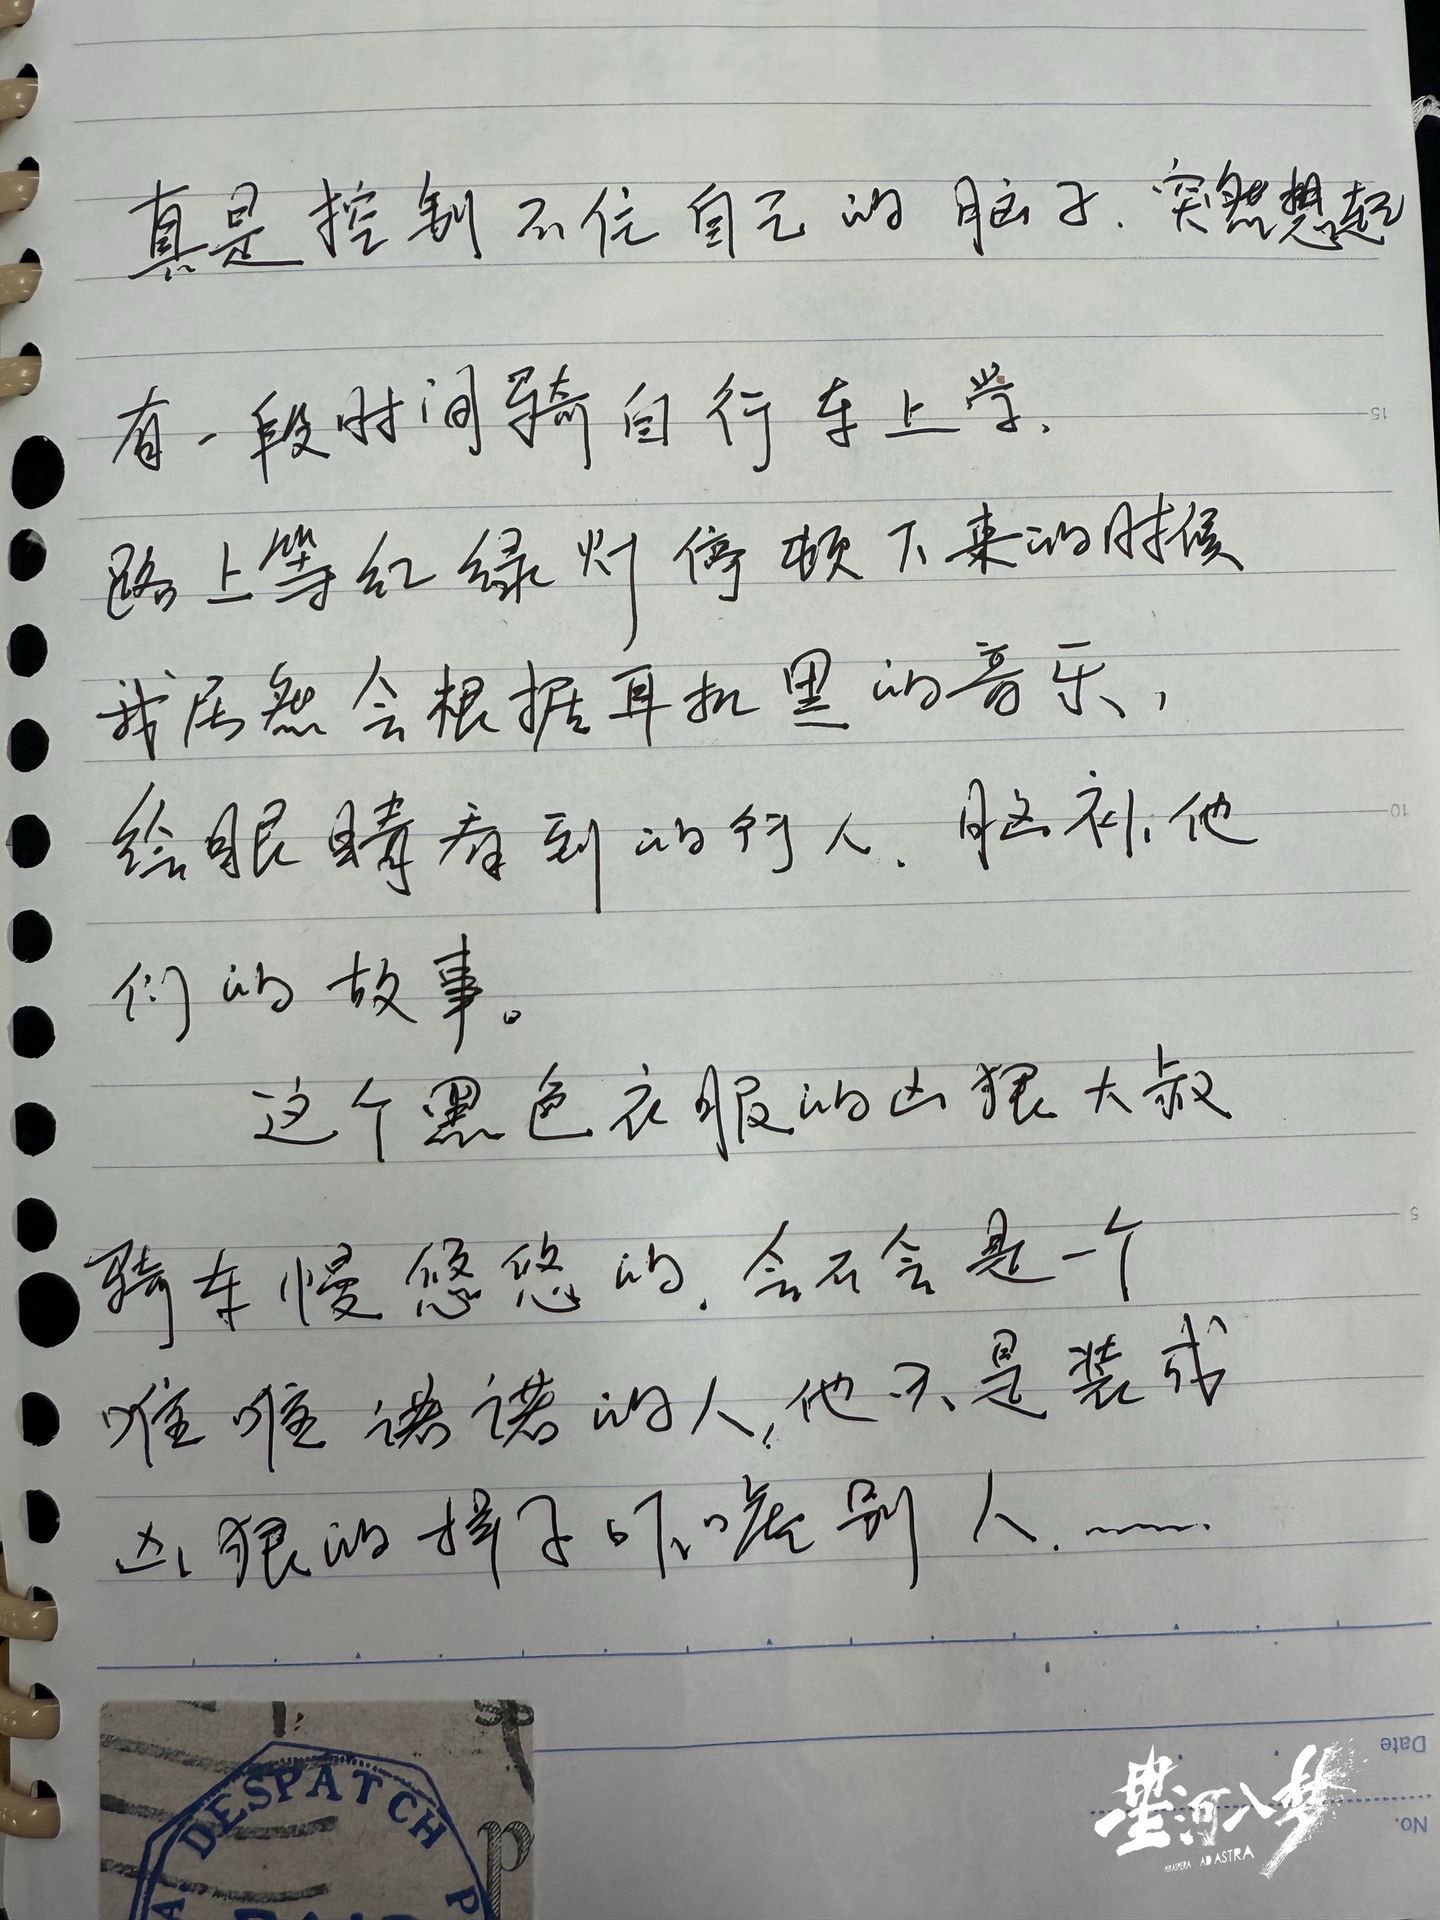 真是控制不住自己的脑子.突然想起
有一段时间骑自行车上学.
路上等红绿灯停顿下来的时候
我居然会根据耳机里的音乐,
给眼睛看到的行人.脑补他
们的故事。
这个黑色衣服的凶狠大叔
骑车慢悠悠的.会不会是一个
唯唯诺诺的人,他只是装成
凶狠的样子吓唬别人.……
15
10
5
Date
No.
DESPATCH
P
p
星河入梦
PER ASPERA AD ASTRA